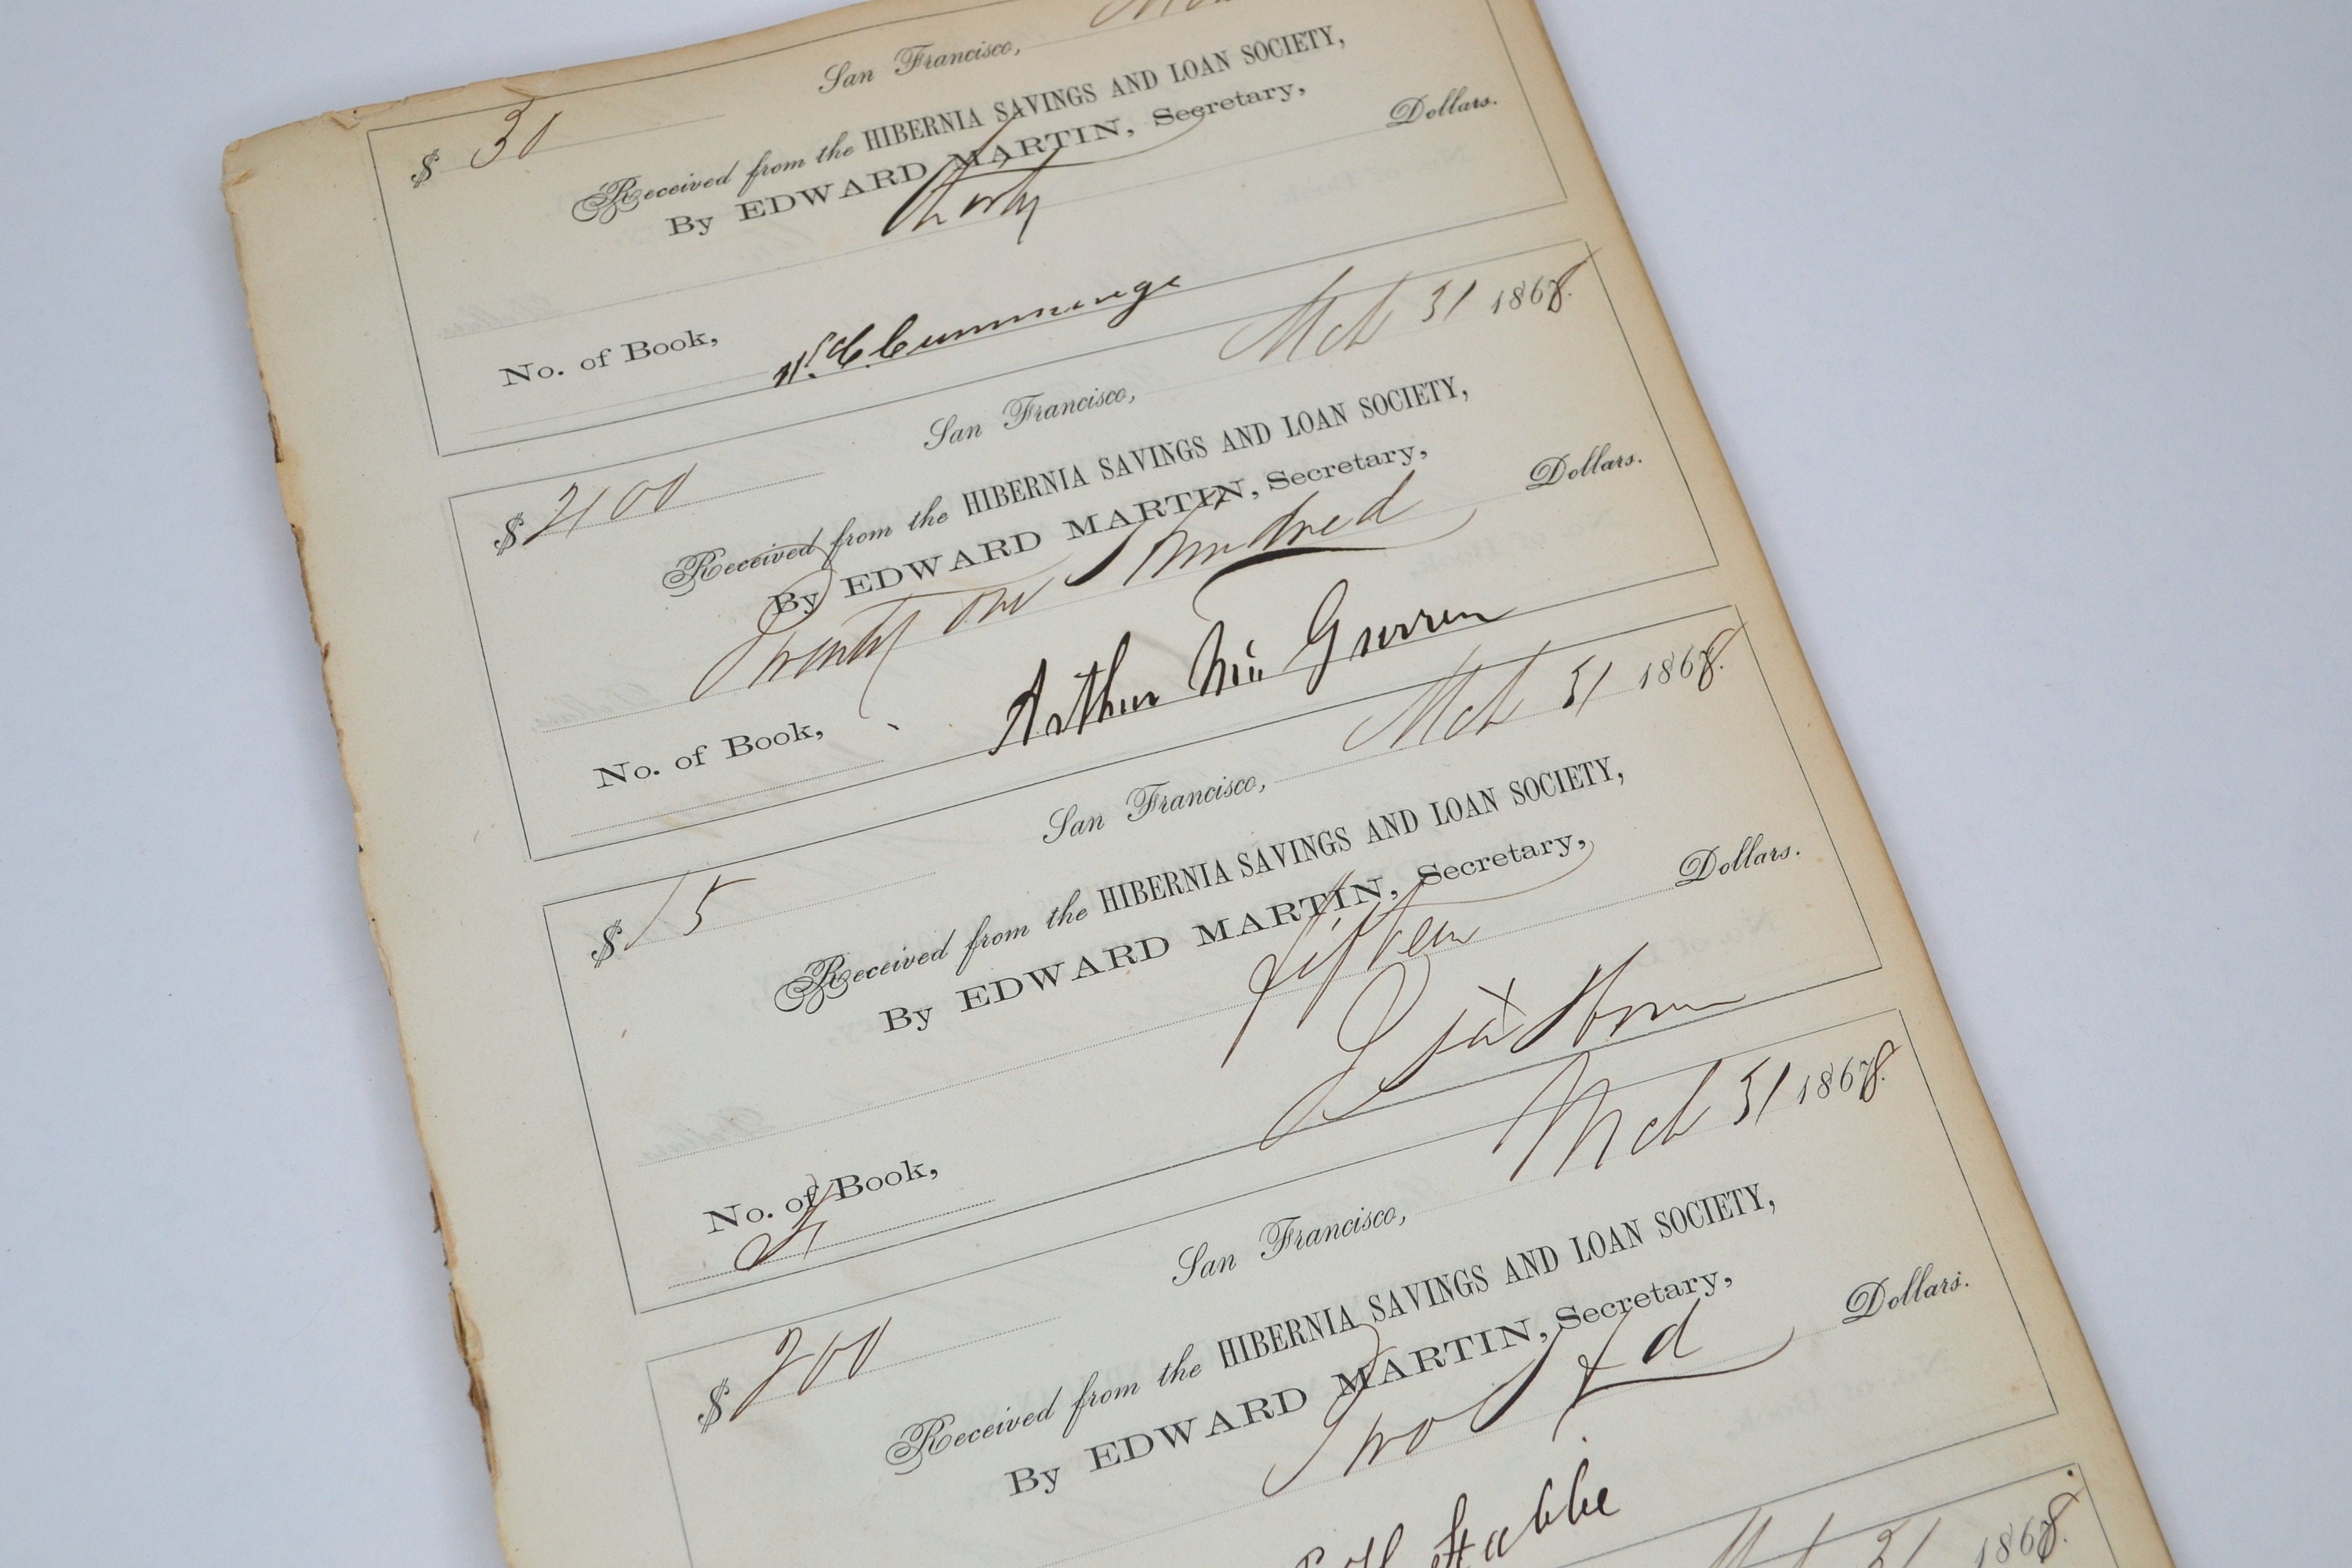 San Francisco,
$ 30
Received from the HIBERNIA SAVINGS AND LOAN SOCIETY,
By EDWARD MARTIN, Secretary,
Thirty Dollars.
No. of Book,
Cummings
San Francisco, Mch 31 1868.
$ 2100
Received from the HIBERNIA SAVINGS AND LOAN SOCIETY,
By EDWARD MARTIN, Secretary,
Twenty one Hundred Dollars.
No. of Book,
Arthur
San Francisco, Mch 31 1868.
$ 15
Received from the HIBERNIA SAVINGS AND LOAN SOCIETY,
By EDWARD MARTIN, Secretary,
fifteen Dollars.
No. of Book,
San Francisco, Mch 31 1868.
$ 200
Received from the HIBERNIA SAVINGS AND LOAN SOCIETY,
By EDWARD MARTIN, Secretary,
Two Hd Dollars.
Mch 31 1868.